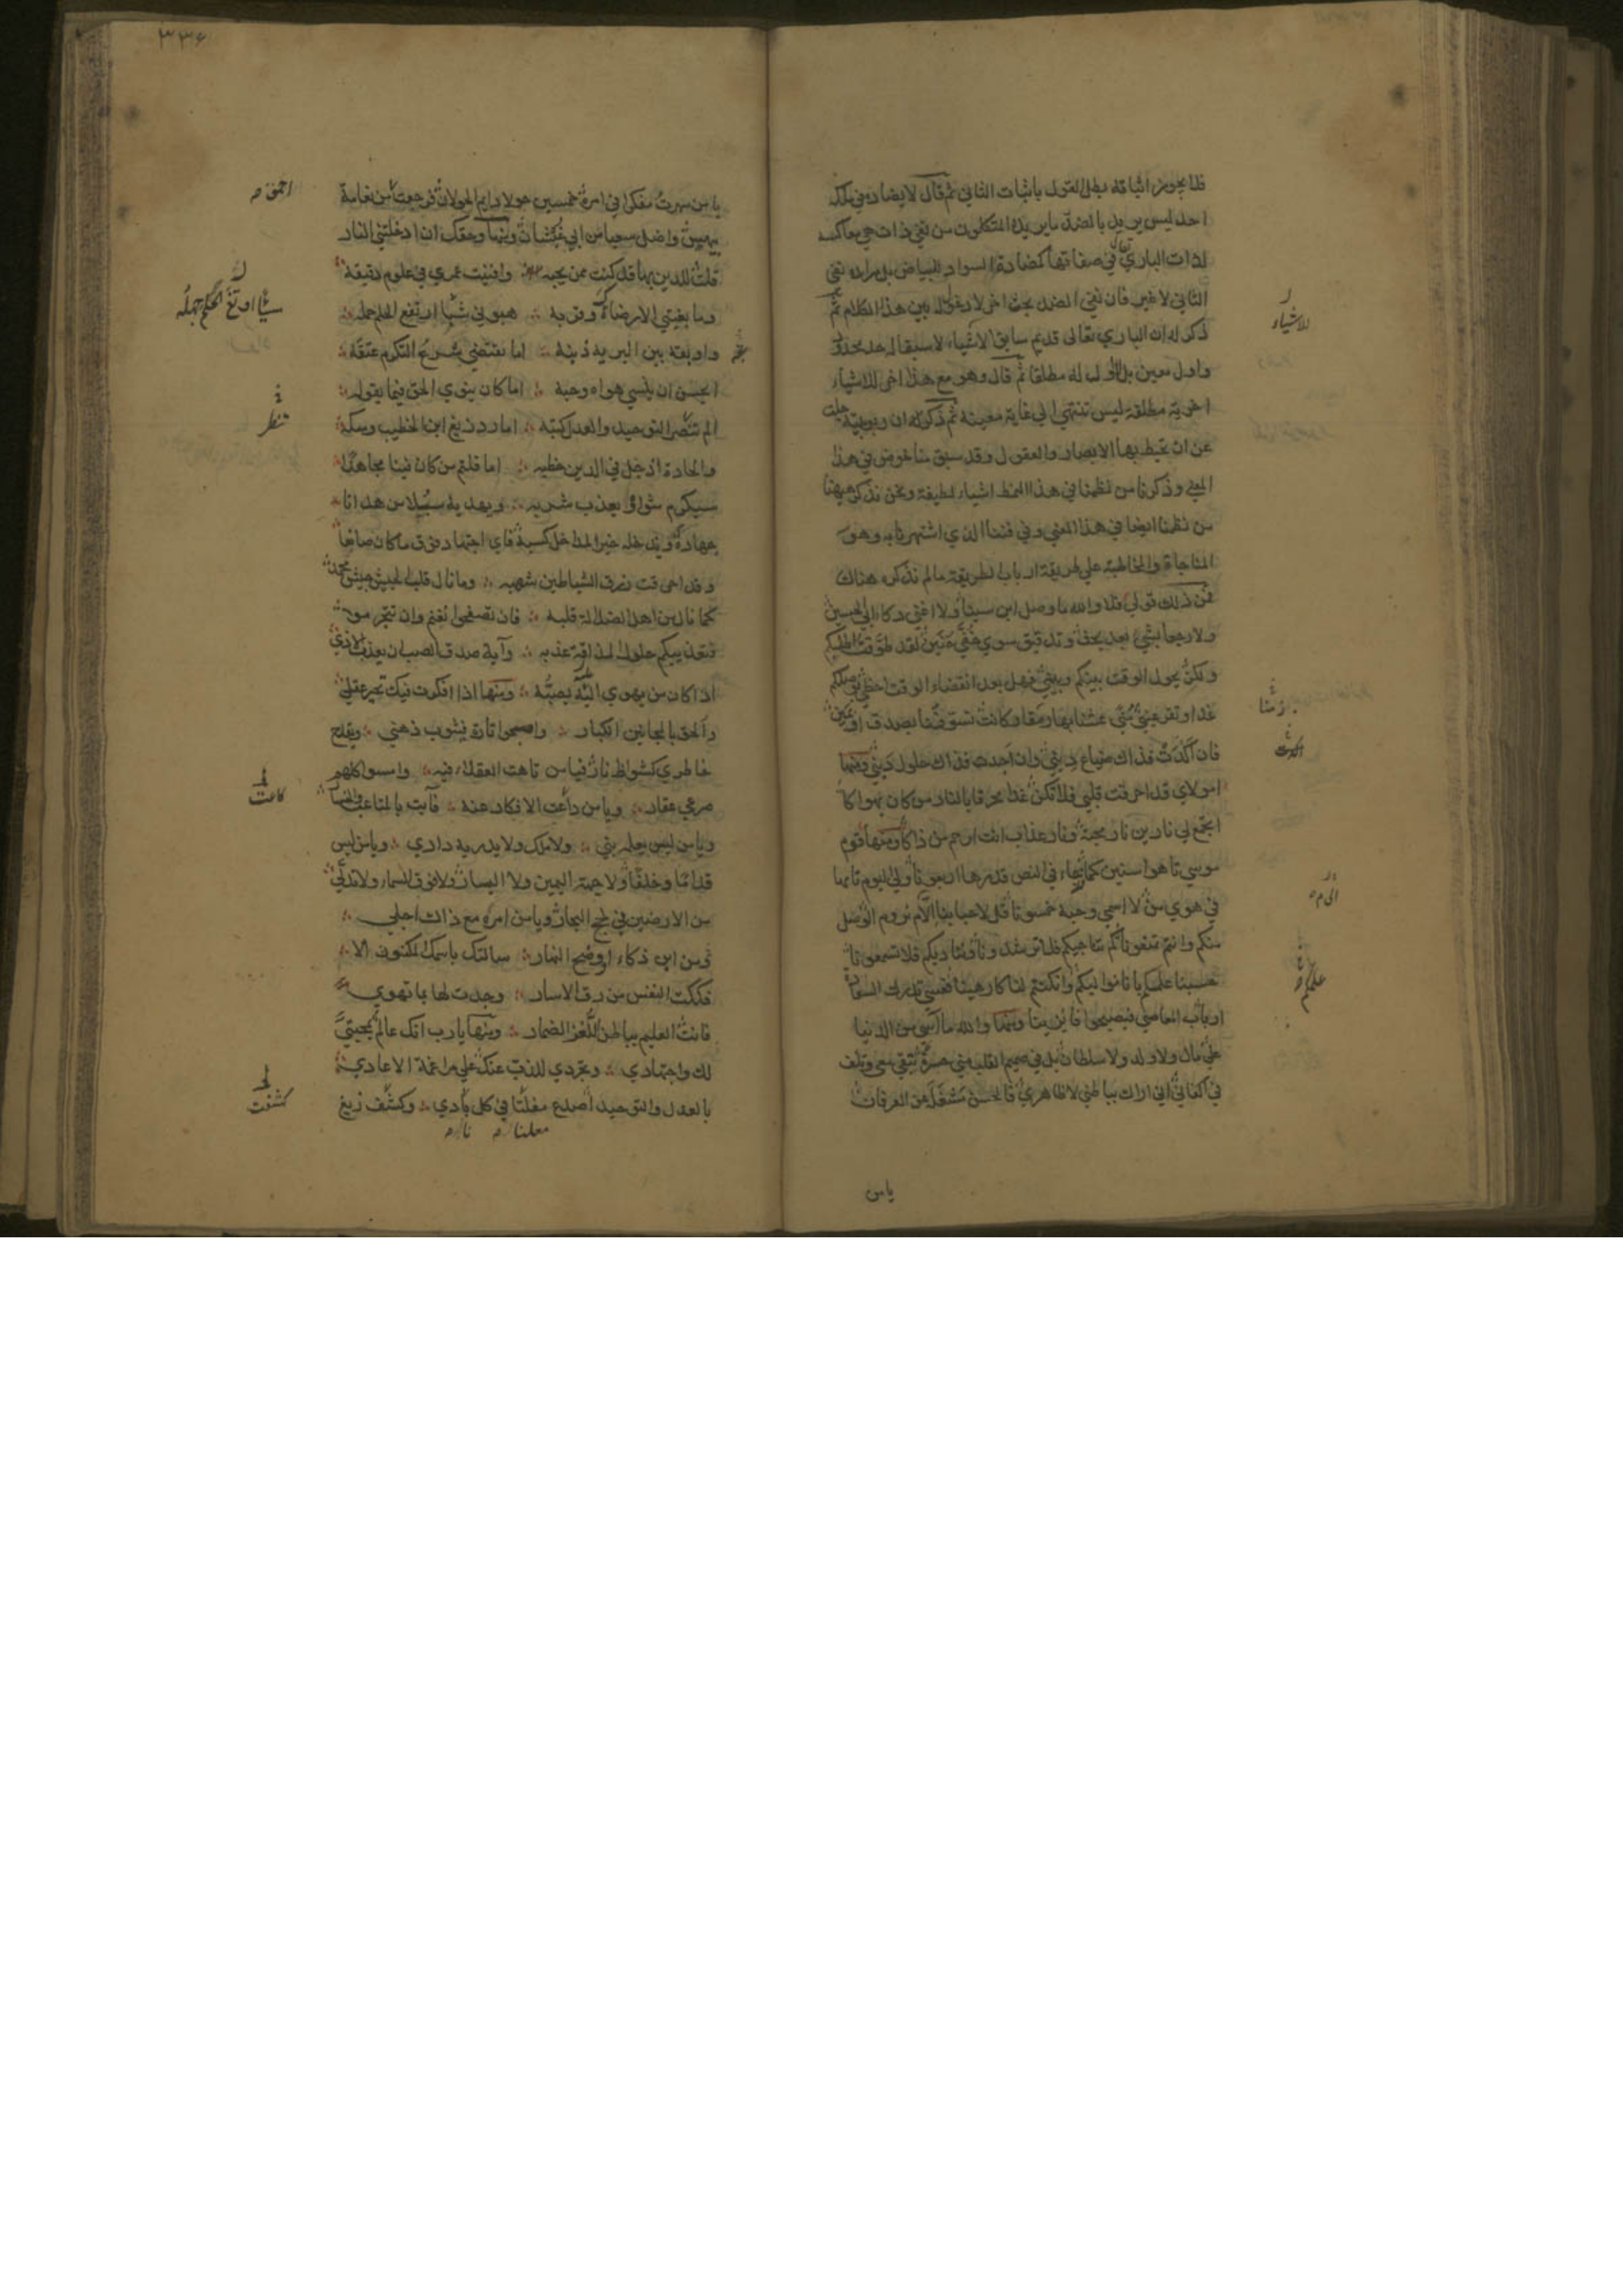 فلا يجوز اثباته بطل القول باثبات الثاني ثم قال لا يضاد في ملكه
احد ليس يريد بالضد ما يريده المتكلمون من نفي ذات هي معاكسة
لذات الباري تعالى في صفاتها كمضادة السواد للبياض بل مراده نفي
الثاني لا غير فان نفي الضد بحث اخر لا دخول له بين هذا الكلام ثم
ذكر له ان الباري تعالى قديم سابق الاشياء لا سبقا له حد محدود
واول معين بل لا اول له مطلقا ثم قال وهو مع هذا اخر للاشياء
اخرية مطلقة ليس تنتهي الى غاية معينة ثم ذكر له ان ربوبيته جلت
عن ان تحيط بها الابصار والعقول وقد سبق منا خوض في هذا
المعنى وذكرنا من نظمنا في هذا النمط اشياء لطيفة ونحن نذكر ههنا
من نظمنا ايضا في هذا المعنى وفي فننا الذي اشتهرنا به وهو
المناجاة والمخاطبة على طريقة ارباب الطريقة ما لم نذكره هناك
فمن ذلك قولي فلا والله ما وصل ابن سينا ولا اغنى ذكاء ابي الحسين
ولا رجعا بشيء بعد بحث وتدقيق سوى خفي حنين لقد طوفت اطلبكم
ولكن يحول الوقت بينكم وبيني فهل بعد انقضاء الوقت احظى بوصلكم
غدا وتقر عيني مُنى عشنا بها زمنا وكانت تسوفنا بصدق او بمين
فان اكدت فذاك ضياع ديني وان اجدت فذاك حلول ديني ومنها
امولاي قد احرقت قلبي فلا تكن غدا محرقا بالنار من كان يهواكا
اتجمع لي نارين نار محبة ونار عذاب انت ارحم من ذاكا ومنها قوم
موسى تاهوا سنين كما جاء في النص قدرها اربعونا ولي اليوم تايها
في هوى من لا اسمي وحبه خمسونا قل لاحبابنا الام نروم الوصل
منكم وانتم تمنعونا كم نناجيكم فلا ترشدونا ونناديكم فلا تسمعونا
حسبنا علمكم بانا مواليكم وان كنتم لنا كارهينا فعسى تدرك السعادة
ارباب المعاصي فيصبحوا فايزينا ومنها والله ما آسى من الدنيا
على مال ولا ولد ولا سلطان بل في صميم القلب مني حسرة تبقى معي وتلف
في اكفاني اني اراك بباطني لا ظاهري فالحسن مشغلة عن العرفان
يا من
للاشياء
زمنا
اكدت
الى م
علمكم
٣٣٦
يا من سهرت مفكرا في امره خمسين حولا دايم الجولان فرجعت احمق من نعامة
بيهس واضل سعيا من ابي غبشان ومنها وحقك ان ادخلتني النار
قلت للذين بها قد كنت ممن يحبه وافنيت عمري في علوم دقيقة
وما بغيتي الا رضاه وقربه هبوني شيئا اوتغ الحلم جهله
واوبقه بين البرية ذنبه اما يقتضي شرع التكرم عتقه
ايحسن ان ينسى هواه وحبه اما كان ينوي الحق فيما يقوله
الم تنصر التوحيد والعدل كتبه اما رد زيغ ابن الخطيب وشكه
والحاده اذ جل في الدين خطبه اما قلتم من كان فينا مجاهدا
سيكرم مثواه ويعذب شربه ويهديه سبلا من هدانا
جهاده ويدخله خير المداخل كسبه فاي اجتهاد فوق ما كان صانعا
وقد احرقت زرق الشياطين شهبه وما نال قلب الجيش جيش محمد
كما نال من اهل الضلالة قلبه فان تصفحوا نغنم وان تتجرموا
فتعذيبكم حلو المذاقة عذبه وآية صدق الصب ان يعذب الاذى
اذا كان من يهوى اليه يصبه ومنها اذا افكرت فيك تحير عقلي
والحق بالمجانين الكبار واصحو تارة فيشوب ذهني ويقدح
خاطري كشواظ نار فيا من تاهت العقلاء فيه وامسوا كلهم
صرعى عقار ويا من كاعت الافكار عنه فآبت بالمتاعب والخسار
ويا من ليس يعلمه نبي ولا ملك ولا يدريه داري ويا من ليس
قداما وخلفا ولا جهة اليمين ولا اليسار ولا فوق السماء ولا تدلى
من الارضين في لجج البحار ويا من امره مع ذاك اجلى
من ابن ذكاء او صبح النهار سالتك باسمك المكنون الا
فككت النفس من رق الاسار وجدت لها بما تهوى
فانت العليم بباطن اللغز الضمار ومنها يا رب انك عالم بمحبتي
لك واجتهادي وتجردي للذب عنك على مراغمة الاعادي
بالعدل والتوحيد اصدع معلنا في كل نادي وكشفت زيغ
احمق
تنظر
كاعت
كشفت
معلنا نا